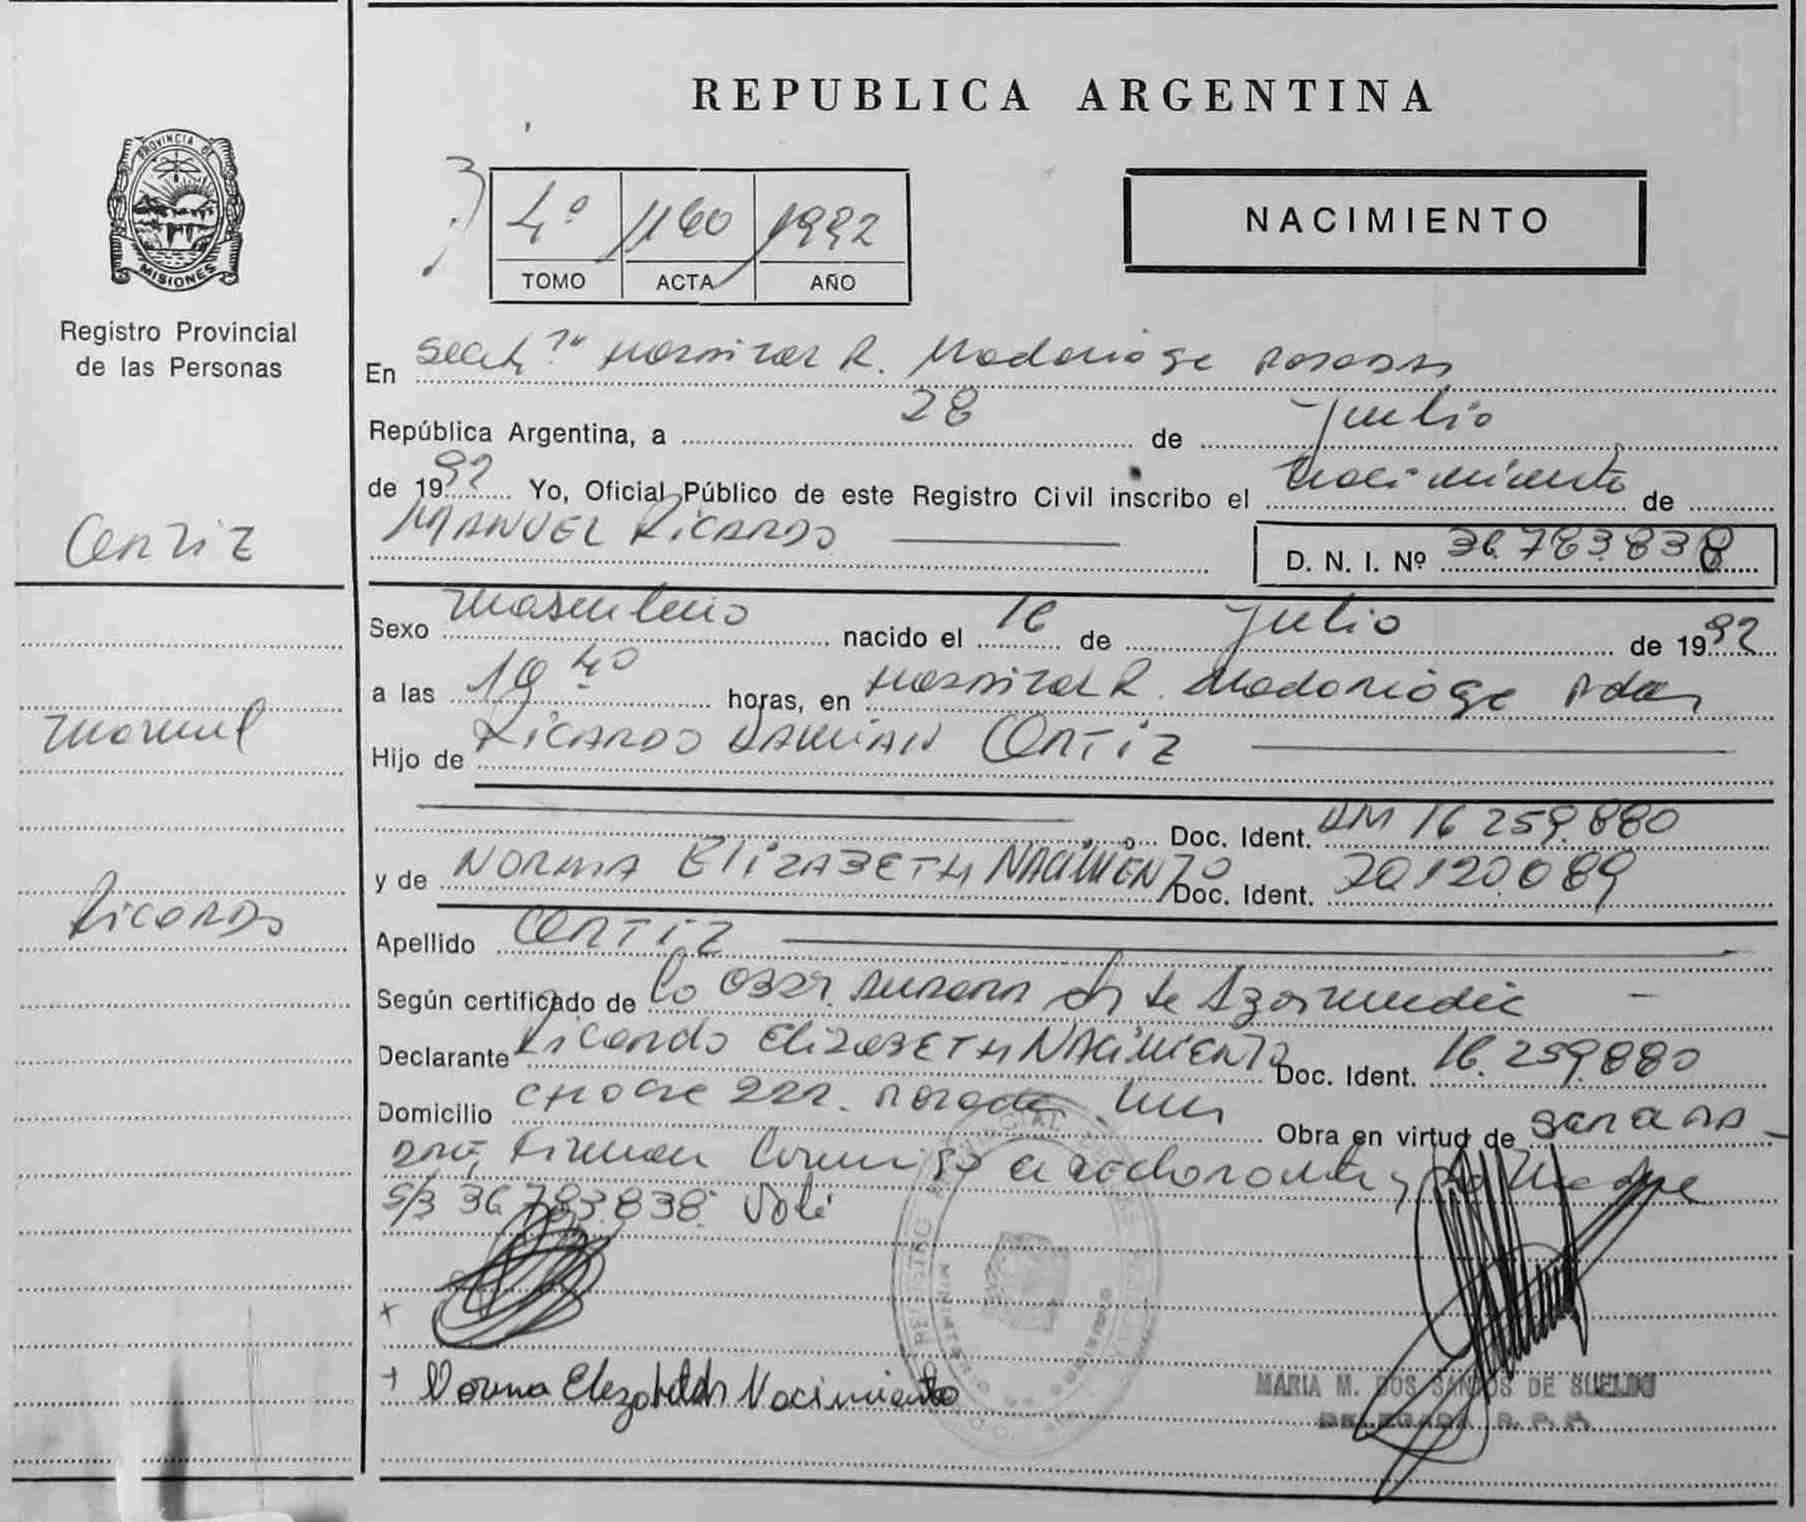 REPUBLICA ARGENTINA
PROVINCIA DE
MISIONES
Registro Provincial
de las Personas
4º 1160 1992
TOMO ACTA AÑO
NACIMIENTO
En Hospital R. Madariaga Posadas
República Argentina, a 28 de Julio
de 1992 Yo, Oficial Público de este Registro Civil inscribo el nacimiento de
MANUEL RICARDO
D. N. I. Nº 36.783.838
Sexo Masculino nacido el 16 de Julio de 1992
a las 19 40 horas, en Hospital R. Madariaga Pdas
Hijo de RICARDO DAMIAN ORTIZ
Doc. Ident. DM 16 259.880
y de NORMA ELIZABETH NACIMIENTO Doc. Ident. 20.120.089
Apellido ORTIZ
Según certificado de la Obst.
Declarante Ricardo ELIZABETH NACIMIENTO Doc. Ident. 16.259.880
Domicilio 222. Posadas Obra en virtud de
Firman y la Madre
s/b 36.783.838. Vale
Norma Elizabeth Nacimiento
MARIA M. DOS SANTOS DE
DELEGADA R. P. P.
REGISTRO PROVINCIAL
MINISTERIO DE GOBIERNO
Ortiz
Manuel
Ricardo